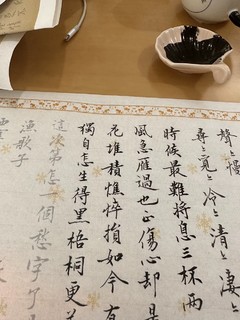 聲々慢
尋々覓々冷々清々凄々
時候最難將息三杯兩
風急雁過也正傷心却是
花堆積憔悴損如今有
獨自怎生得黑梧桐更
這次第怎一個愁字了
漁歌子
西塞